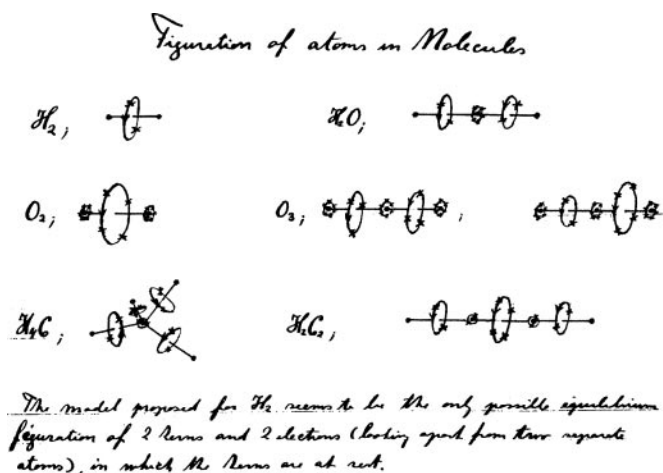 Figuration of atoms in Molecules
H₂; H₂O;
O₂; O₃; ;
H₄C; H₂C₂;
The model proposed for H₂ seems to be the only possible equilibrium
figuration of 2 kerns and 2 elections (looking apart from two separate
atoms), in which the kerns are at rest.